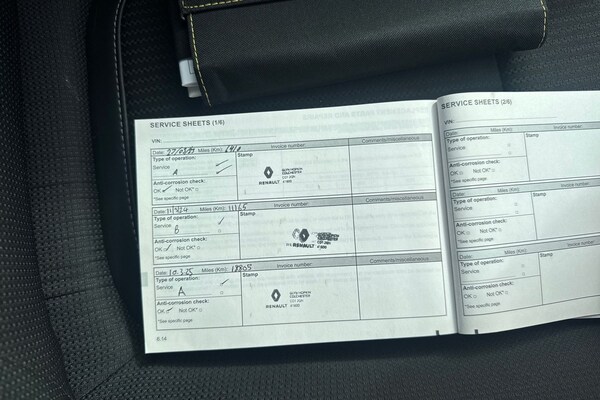 SERVICE SHEETS (1/6)
VIN:
Date: Miles (Km): Invoice number: Comments/miscellaneous
Type of operation: Stamp
Service
A
Anti-corrosion check:
OK Not OK*
*See specific page
RENAULT
Date: Miles (Km): 11165 Invoice number: Comments/miscellaneous
Type of operation: Stamp
Service
B
Anti-corrosion check:
OK Not OK*
*See specific page
RENAULT
Date: 10.3.25 Miles (Km): 18805 Invoice number: Comments/miscellaneous
Type of operation: Stamp
Service
A
Anti-corrosion check:
OK Not OK*
*See specific page
RENAULT
6.14
SERVICE SHEETS (2/6)
VIN:
Date: Miles (Km): Invoice number:
Type of operation: Stamp
Service
Anti-corrosion check:
OK Not OK*
*See specific page
Date: Miles (Km): Invoice number:
Type of operation: Stamp
Service
Anti-corrosion check:
OK Not OK*
*See specific page
Date: Miles (Km): Invoice number:
Type of operation: Stamp
Service
Anti-corrosion check:
OK Not OK*
*See specific page